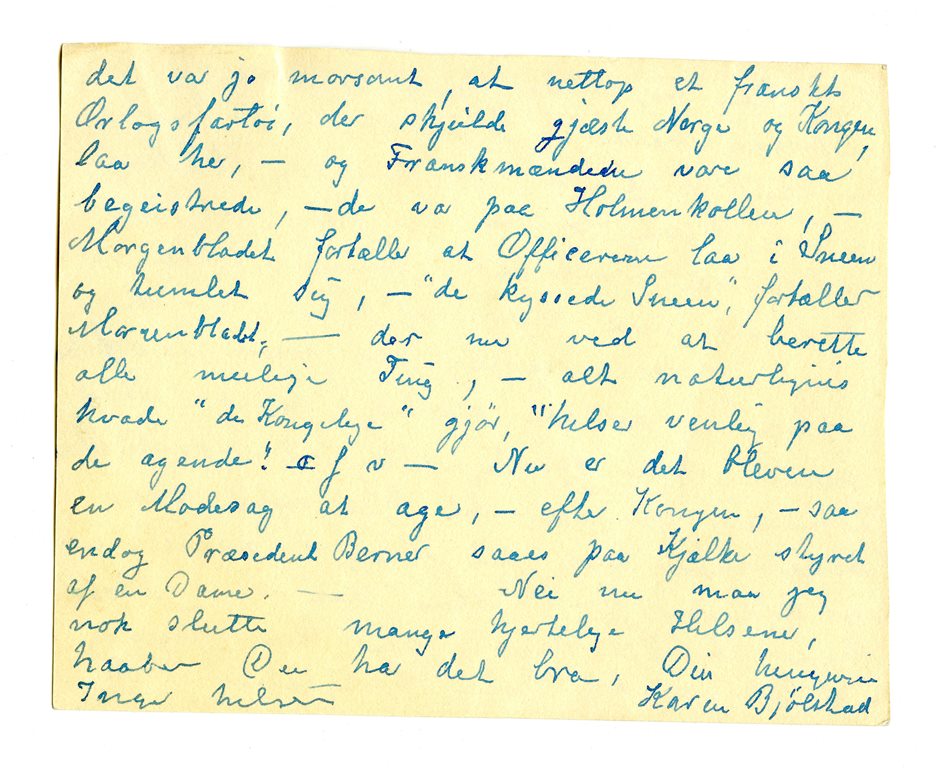 det var jo morsomt, at nettop et franskt
Orlogsfartøi, der skjulde gjæste Norge og Kongen,
laa her, – og Franskmændene vare saa
begeistrede, – de va paa Holmenkollen, –
Morgenbladet fortæller at Officererne laa i Sneen
og tumlet sig, – "de kyssede Sneen", fortæller
Morgenbladet, — der nu ved at berette
alle mulige Ting, – alt naturligvis
hvade "de Kongelige" gjør, "hilser venlig paa
de agende"! o f v – Nu er det bleven
en Modesag at age, – efter Kongen, – saa
endog Præsident Berner saaes paa Kjælke styret
af en Dame. — Nei nu maa jeg
nok slutte mange hjertelige Hilsener,
haaber Du har det bra, Din hengivne
Inger hilser Karen Bjølstad